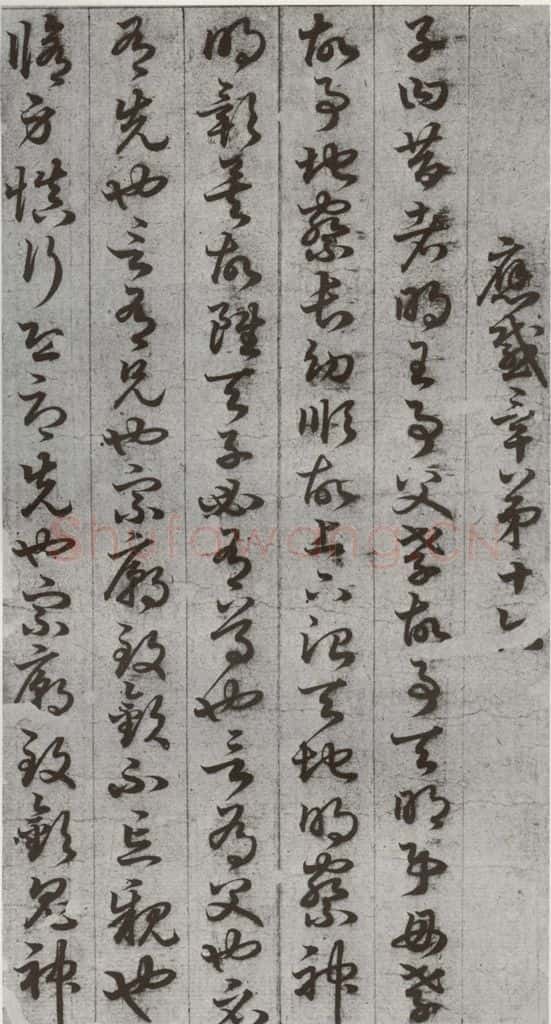 應感章第十六
子曰昔者明王事父孝故事天明事母孝
故事地察長幼順故上下治天地明察神
明彰矣故雖天子必有尊也言有父也必
有先也言有兄也宗廟致敬不忘親也
脩身慎行恐辱先也宗廟致敬鬼神
Shufawang.CN